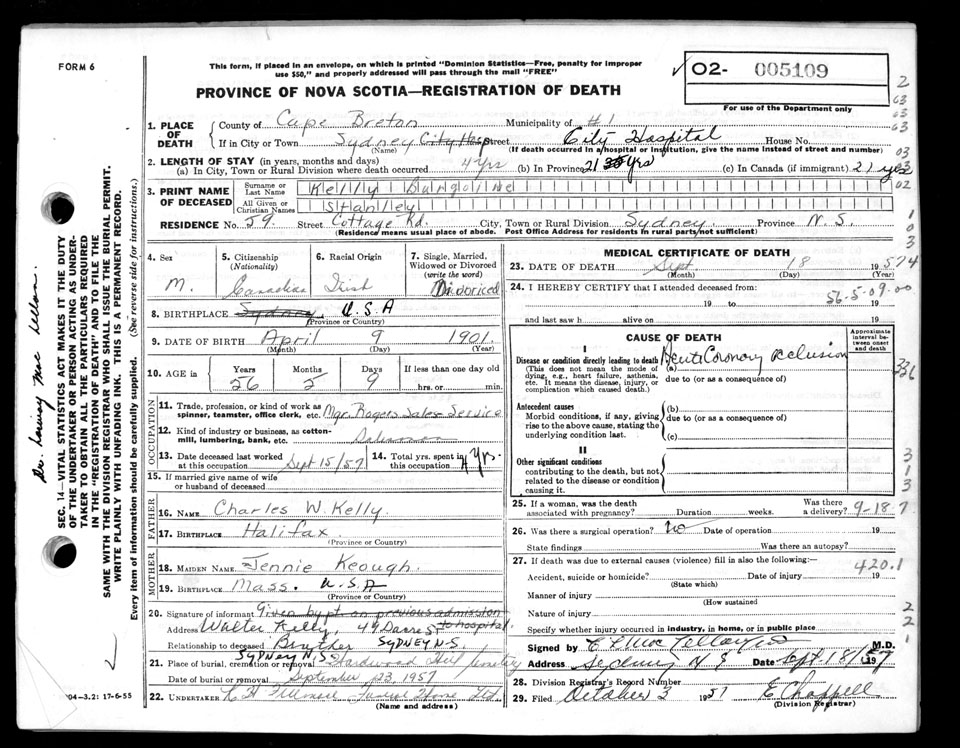 FORM 6
This form, if placed in an envelope, on which is printed "Dominion Statistics—Free, penalty for improper
use $50," and properly addressed will pass through the mail "FREE"
O2- 005109
For use of the Department only
PROVINCE OF NOVA SCOTIA—REGISTRATION OF DEATH
1. PLACE OF DEATH
County of Cape Breton Municipality of #1
If in City or Town Sydney City Hosp Street City Hospital House No.
(Name) (If death occurred in a hospital or institution, give the name instead of street and number)
2. LENGTH OF STAY (in years, months and days)
(a) In City, Town or Rural Division where death occurred 4 yrs (b) In Province 21 yrs (c) In Canada (if immigrant) 21 yrs
3. PRINT NAME OF DECEASED
Surname or Last Name Kelly
All Given or Christian Names Stanley
RESIDENCE No. 59 Street Cottage Rd. City, Town or Rural Division Sydney Province N.S.
(Residence means usual place of abode. Post Office Address for residents in rural parts not sufficient)
4. Sex
M.
5. Citizenship
(Nationality)
Canadian
6. Racial Origin
Irish
7. Single, Married,
Widowed or Divorced
(write the word)
Divorced
8. BIRTHPLACE Sydney U.S.A
(Province or Country)
9. DATE OF BIRTH April 9 1901
(Month) (Day) (Year)
10. AGE in
Years Months Days If less than one day old
56 5 9 hrs. or min.
OCCUPATION
11. Trade, profession, or kind of work as
spinner, teamster, office clerk, etc. Mgr. Rogers Sales Service
12. Kind of industry or business, as cotton-
mill, lumbering, bank, etc. Salesman
13. Date deceased last worked
at this occupation Sept 15/57
14. Total yrs. spent in
this occupation 4 Yrs.
15. If married give name of wife
or husband of deceased
FATHER
16. NAME Charles W. Kelly
17. BIRTHPLACE Halifax
(Province or Country)
MOTHER
18. MAIDEN NAME Jennie Keough
19. BIRTHPLACE Mass. U.S.A
(Province or Country)
20. Signature of informant Given by pt on previous admission to hospital
Address Walter Kelly, 49 Dacre St
Relationship to deceased Brother SYDNEY N.S.
SYDNEY N.S
21. Place of burial, cremation or removal Hardwood Hill Cemetery
Date of burial or removal September 23, 1957
22. UNDERTAKER Funeral Home Ltd.
(Name and address)
MEDICAL CERTIFICATE OF DEATH
23. DATE OF DEATH Sept. 18 1957
(Month) (Day) (Year)
24. I HEREBY CERTIFY that I attended deceased from:
56-5-09-00
19 to 19
and last saw h alive on 19
CAUSE OF DEATH
Approximate interval between onset and death
I
Disease or condition directly leading to death
(This does not mean the mode of
dying, e.g., heart failure, asthenia,
etc. It means the disease, injury, or
complication which caused death.)
(a) Acute Coronary occlusion
due to (or as a consequence of)
Antecedent causes
Morbid conditions, if any, giving
rise to the above cause, stating the
underlying condition last.
(b)
due to (or as a consequence of)
(c)
II
Other significant conditions
contributing to the death, but not
related to the disease or condition
causing it.
25. If a woman, was the death
associated with pregnancy? Duration weeks. Was there a delivery? 9-18-7
26. Was there a surgical operation? no Date of operation 19
State findings Was there an autopsy?
27. If death was due to external causes (violence) fill in also the following:
420.1
Accident, suicide or homicide? Date of injury 19
(State which)
Manner of injury
(How sustained
Nature of injury
Specify whether injury occurred in industry, in home, or in public place
Signed by M.D.
Address Sydney N S Date Sept. 18/57 19
28. Division Registrar's Record Number
29. Filed October 3 1957 E Chappell
(Division Registrar)
SEC. 14—VITAL STATISTICS ACT MAKES IT THE DUTY
OF THE UNDERTAKER OR PERSON ACTING AS UNDER-
TAKER TO OBTAIN ALL THE PARTICULARS REQUIRED
IN THE "REGISTRATION OF DEATH" AND TO FILE THE
SAME WITH THE DIVISION REGISTRAR WHO SHALL ISSUE THE BURIAL PERMIT.
WRITE PLAINLY WITH UNFADING INK. THIS IS A PERMANENT RECORD.
Every item of information should be carefully supplied. (See reverse side for instructions.)
04-3.21: 17-6-55